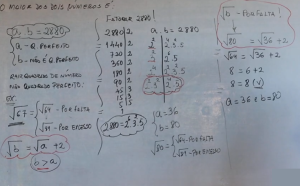 O MAIOR DOS DOIS NÚMEROS É:
a, b = 2880,
a - Q. PERFEITO
b - NÃO É Q PERFEITO
RAIZ QUADRADA DE NÚMERO
NÃO QUADRADO PERFEITO:
EX:
√67 = √64 - POR FALTA
√81 - POR EXCESSO
√b = √a + 2
b > a
FATORAR 2880
2880 2
1440 2
720 2
360 2
180 2
90 2
45 3
15 3
5 5
1
2880 = 2⁶.3².5
a, b = 2880
a = 36
b = 80
√80 = √64 - POR FALTA
√81 - POR EXCESSO
√b - POR FALTA!
√80 = √36 + 2
√64 = √36 + 2
8 = 6 + 2
8 = 8 (V)
a = 36 e b = 80